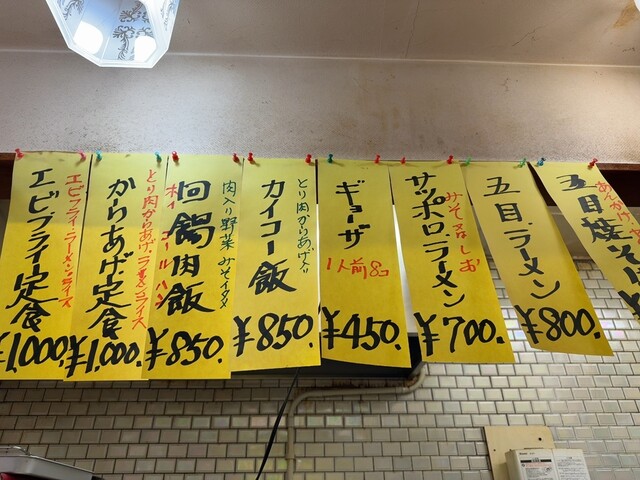 エビフライ定食
エビフライ・ラーメン・ライス
¥1,000.
からあげ定食
とり肉からあげ・ラーメン・ライス
¥1,000.
回鍋肉飯
ホイ コール ハン
¥850.
肉入り野菜 みそイタメ
カイコー飯
とり肉からあげ入り
¥850.
ギョーザ
1人前8コ
¥450.
サッポロ・ラーメン
みそ
しお
¥700.
五目・ラーメン
¥800.
五目焼そ
あんかけ
¥